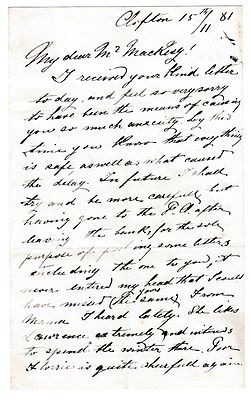 Clifton 15th/11 81
My dear Mr Mackesy!
I received your kind letter
to day, and feel so very sorry
to have been the means of causing
you so much anxiety by this
time you know that everything
is safe as well as what caused
the delay. In future I shall
try and be more careful, but
having gone to the P.O. after
leaving the bank, for the sole
purpose of posting some letters
including the one to you, it
never entired my head that I could
have missed the same. From
I heard lately. She likes
Lawrence extremely and intends
to spend the winter there. Poor
Florrie is quite cheerfull again